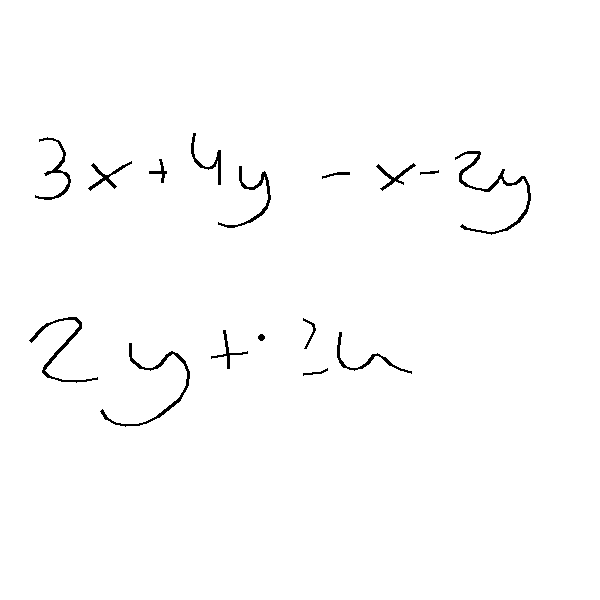 3x+4y -x-2y
2y+